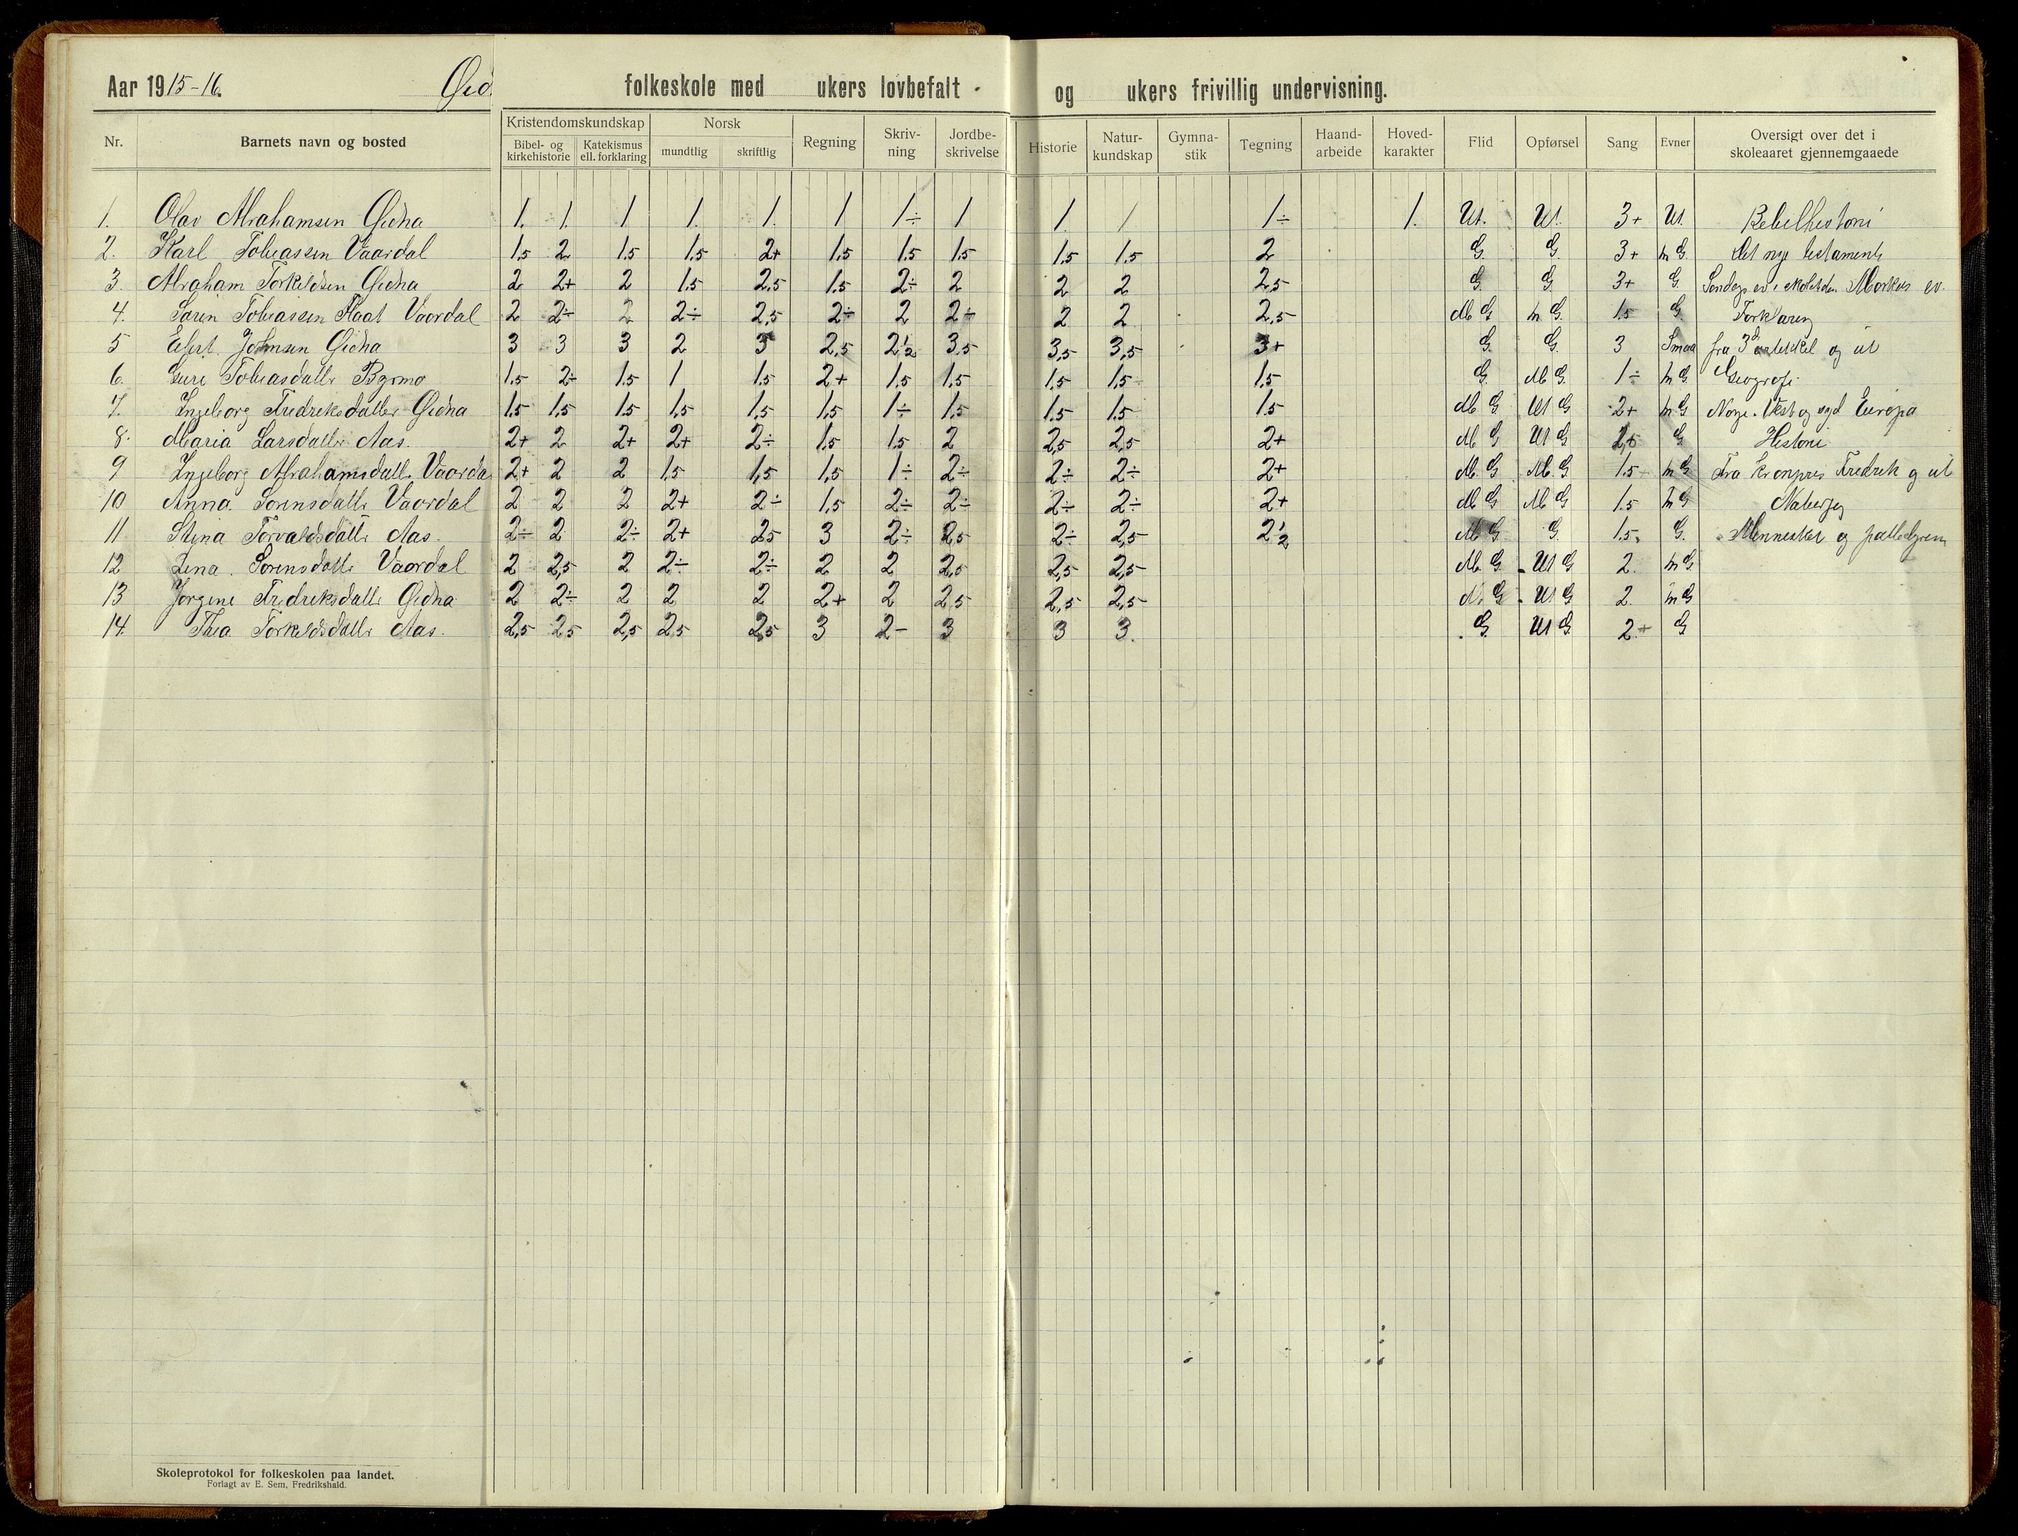 Aar 1915-16. Øid folkeskole med ukers lovbefalt og ukers frivillig undervisning.
Nr. Barnets navn og bosted Kristendomskundskap Bibel- og kirkehistorie Katekismus ell. forklaring Norsk mundtlig skriftlig Regning Skriv-ning Jordbe-skrivelse Historie Natur-kundskap Gymna-stik Tegning Haand-arbeide Hoved-karakter Flid Opførsel Sang Evner Oversigt over det i skoleaaret gjennemgaaede
1. Olav Abrahamsen Øidna 1. 1. 1 1. 1. 1 1÷ 1 1. 1 1÷ 1. Ut. Ut. 3+ Ut. Bibelhistorie
2. Karl Tobiassen Vaardal 1.5 2 1.5 1.5 2+ 1.5 1.5 1.5 1.5 1.5 2 G. G. 3+ m G. Det nye testamente
3. Abraham Torkeldsen Øidna 2 2+ 2 1.5 2.5 1.5 2÷ 2 2 2 2.5 G. G 3+ G. Søndags ev. i skoletiden Markus ev.
4. Søren Tobiassen Vaardal 2 2÷ 2 2÷ 2.5 2÷ 2 2÷ 2 2 2.5 M G m G. 1.5 G. Forklaring
5 Johnsen Øidna 3 3 3 2 3 2,5 2½ 3.5 3,5 3,5 3+ G. G. 3 Smaa fra 3d artikkel og ut
6. Tobiasdatter Byrmo 1.5 2÷ 1.5 1 1.5 2+ 1.5 1.5 1.5 1.5 1.5 G. M G. 1÷ m G. Geografi
7. Ingeborg Fredriksdatter Øidna 1.5 1,5 1.5 1,5 1,5 1,5 1÷ 1.5 1.5 1.5 1.5 M G Ut G 2+ m G Norge. Vest og syd Europa
8. Maria Larsdatter Aas. 2+ 2 2+ 2+ 2÷ 1.5 1.5 2 2,5 2,5 2+ M G Ut G 2,5 G Historie
9 Ingeborg Abrahamsdatter Vaarda 2+ 2 2 1,5 1,5 1,5 1÷ 2÷ 2÷ 2÷ 2+ M. G M. G 1.5 m G Fra Kronpres Fredrik og ut
10 Anna Sørensdatter Vaardal 2 2 2 2+ 2÷ 1,5 2÷ 2÷ 2÷ 2÷ 2+ M G M G 1.5 m G
11 Stina Torvaldsdatter Aas. 2÷ 2 2÷ 2+ 2.5 3 2÷ 2,5 2÷ 2,5 2½ M G G. 1.5. G. Mennesket og
12 Lina Sørensdatter Vaardal 2 2,5 2 2÷ 2÷ 2 2 2,5 2,5 2,5 M. G. Ut G 2. m G
13 Jørgine Fredriksdatter Øidna 2 2÷ 2 2 2 2+ 2 2,5 2,5 2,5 M G Ut G 2. m G
14. Thea Torkeldsdatter Aas. 2,5 2,5 2,5 2,5 2,5 3 2- 3 3 3. G. Ut G 2+ G
Skoleprotokol for folkeskolen paa landet.
Forlagt av E. Sem, Fredrikshald.